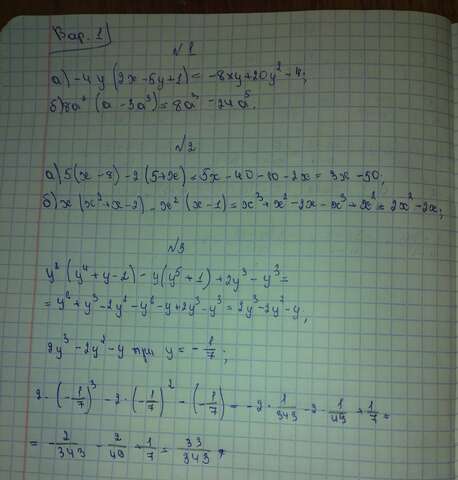 Вар. 1
№1
а) -4y (2x-5y+1) = -8xy+20y²-4;
б) 8a² (a-3a³) = 8a³-24a⁵.
№2
а) 5(x-8)-2(5+x) = 5x-40-10-2x = 3x-50;
б) x (x²+x-2) - x² (x-1) = x³+x²-2x-x³+x² = 2x²-2x;
№3
y² (y⁴+y-2) - y(y⁵+1) + 2y³-y³ =
= y⁶+y³-2y²-y⁶-y+2y³-y³ = 2y³-2y²-y,
2y³-2y²-y при y = -1/7;
2·(-1/7)³ - 2·(-1/7)² - (-1/7) = -2·1/343 - 2·1/49 + 1/7 =
= -2/343 - 2/49 + 1/7 = 33/343.